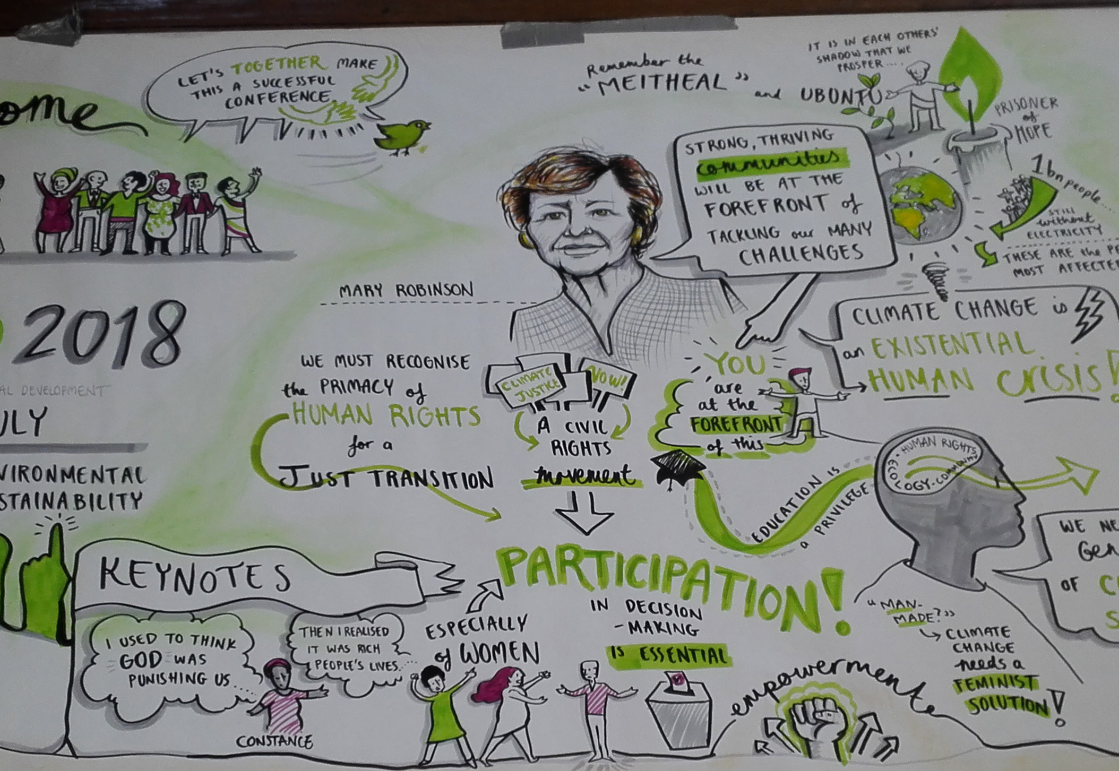 ome
LET'S TOGETHER MAKE
THIS A SUCCESSFUL
CONFERENCE
2018
AL DEVELOPMENT
ULY
VIRONMENTAL
STAINABILITY
Remember the
"MEITHEAL"
and UBONTU
IT IS IN EACH OTHERS'
SHADOW THAT WE
PROSPER....
PRISONER
of
HOPE
1bn people
STILL
WITHOUT
ELECTRICITY
THESE ARE the PE
MOST AFFECTE
STRONG, THRIVING
communities
WILL BE AT THE
FOREFRONT of
TACKLING our MANY
CHALLENGES
MARY ROBINSON
CLIMATE CHANGE is
an EXISTENTIAL
HUMAN CRISIS!
WE MUST RECOGNISE
the PRIMACY of
HUMAN RIGHTS
for a
JUST TRANSITION
CLIMATE
JUSTICE
NOW!
A CIVIC
RIGHTS
movement
YOU
are
at the
FOREFRONT
of this
EDUCATION is
a PRIVILEGE
HUMAN RIGHTS
ECOLOGY
WE NE
Gen
OF C
S
KEYNOTES
I USED TO THINK
GOD WAS
PUNISHING US...
THEN I REALISED
IT WAS RICH
PEOPLE'S LIVES...
CONSTANCE
PARTICIPATION!
ESPECIALLY
of WOMEN
IN DECISION
-MAKING
IS ESSENTIAL
empowerment
"MAN-
MADE?"
CLIMATE
CHANGE
needs a
FEMINIST
SOLUTION!